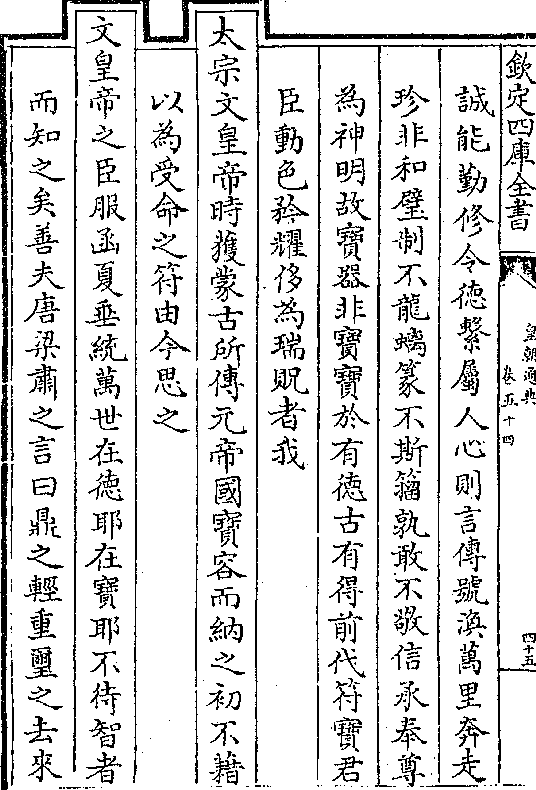 欽定四庫全書
皇朝通典
卷五十四
四十五
誠能勤修令德繫屬人心則言傳號渙萬里奔走
珍非和璧制不龍螭篆不斯籀孰敢不敬信承奉尊
為神明故寶器非寶寶於有德古有得前代符寶君
臣動色矜耀侈為瑞貺者我
太宗文皇帝時獲蒙古所傳元帝國寶容而納之初不藉
以為受命之符由今思之
文皇帝之臣服函夏垂統萬世在德耶在寶耶不待智者
而知之矣善夫唐梁肅之言曰鼎之輕重璽之去來